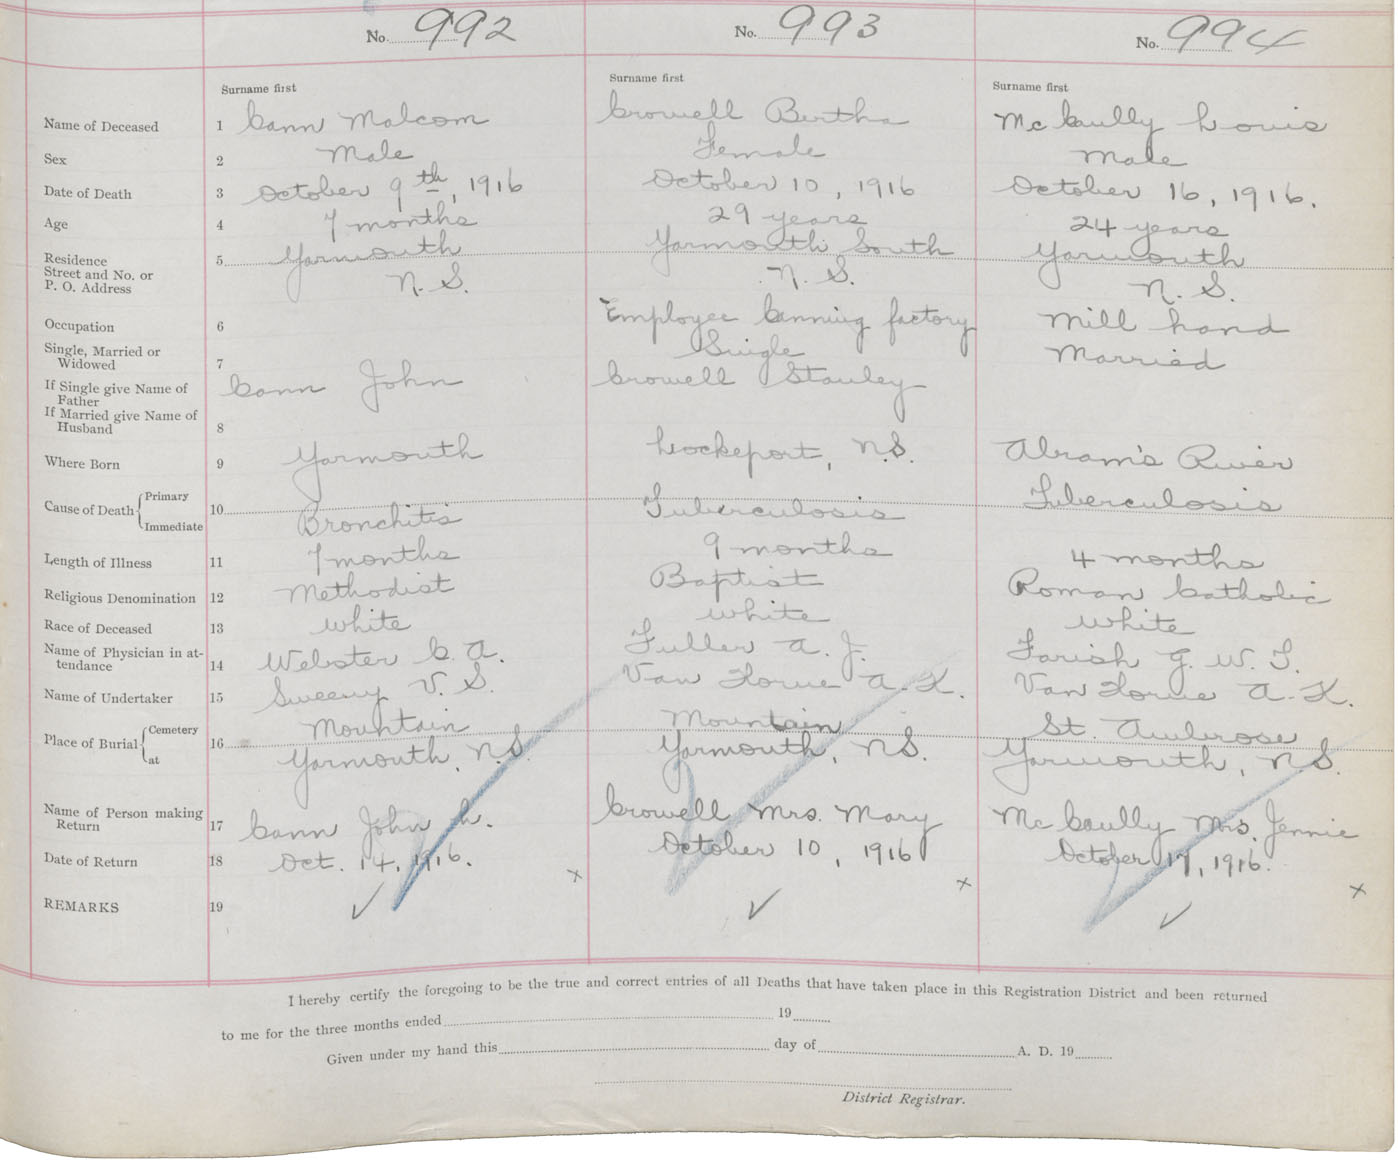 No. 992 No. 993 No. 994
Surname first Surname first Surname first
Name of Deceased 1 Cann Malcom Crowell Bertha McCaully Louis
Sex 2 Male Female Male
Date of Death 3 October 9th, 1916 October 10, 1916 October 16, 1916.
Age 4 7 months 29 years 24 years
Residence 5 Yarmouth Yarmouth South Yarmouth
Street and No. or
P. O. Address N. S. N. S. N. S.
Occupation 6 Employee Canning factory Mill hand
Single, Married or
Widowed 7 Single Married
If Single give Name of
Father Cann John Crowell Stanley
If Married give Name of
Husband 8
Where Born 9 Yarmouth Lockeport, N.S. Abram's River
Cause of Death Primary
10 Tuberculosis Tuberculosis
Immediate Bronchitis
Length of Illness 11 7 months 9 months 4 months
Religious Denomination 12 Methodist Baptist Roman Catholic
Race of Deceased 13 White White White
Name of Physician in at-
tendance 14 Webster C. A. Fuller A. J. Farish G. W. T.
Name of Undertaker 15 Sweeny V. S. Van Horne A. K. Van Horne A. K.
Place of Burial Cemetery 16 Mountain Mountain St. Ambrose
at Yarmouth, N.S. Yarmouth, N.S. Yarmouth, N.S.
Name of Person making
Return 17 Cann John H. Crowell Mrs. Mary McCaully Mrs. Jennie
Date of Return 18 Oct. 14, 1916. October 10, 1916 October 17, 1916.
x x x
REMARKS 19 ✓ ✓ ✓
I hereby certify the foregoing to be the true and correct entries of all Deaths that have taken place in this Registration District and been returned
to me for the three months ended 19
Given under my hand this day of A. D. 19
District Registrar.